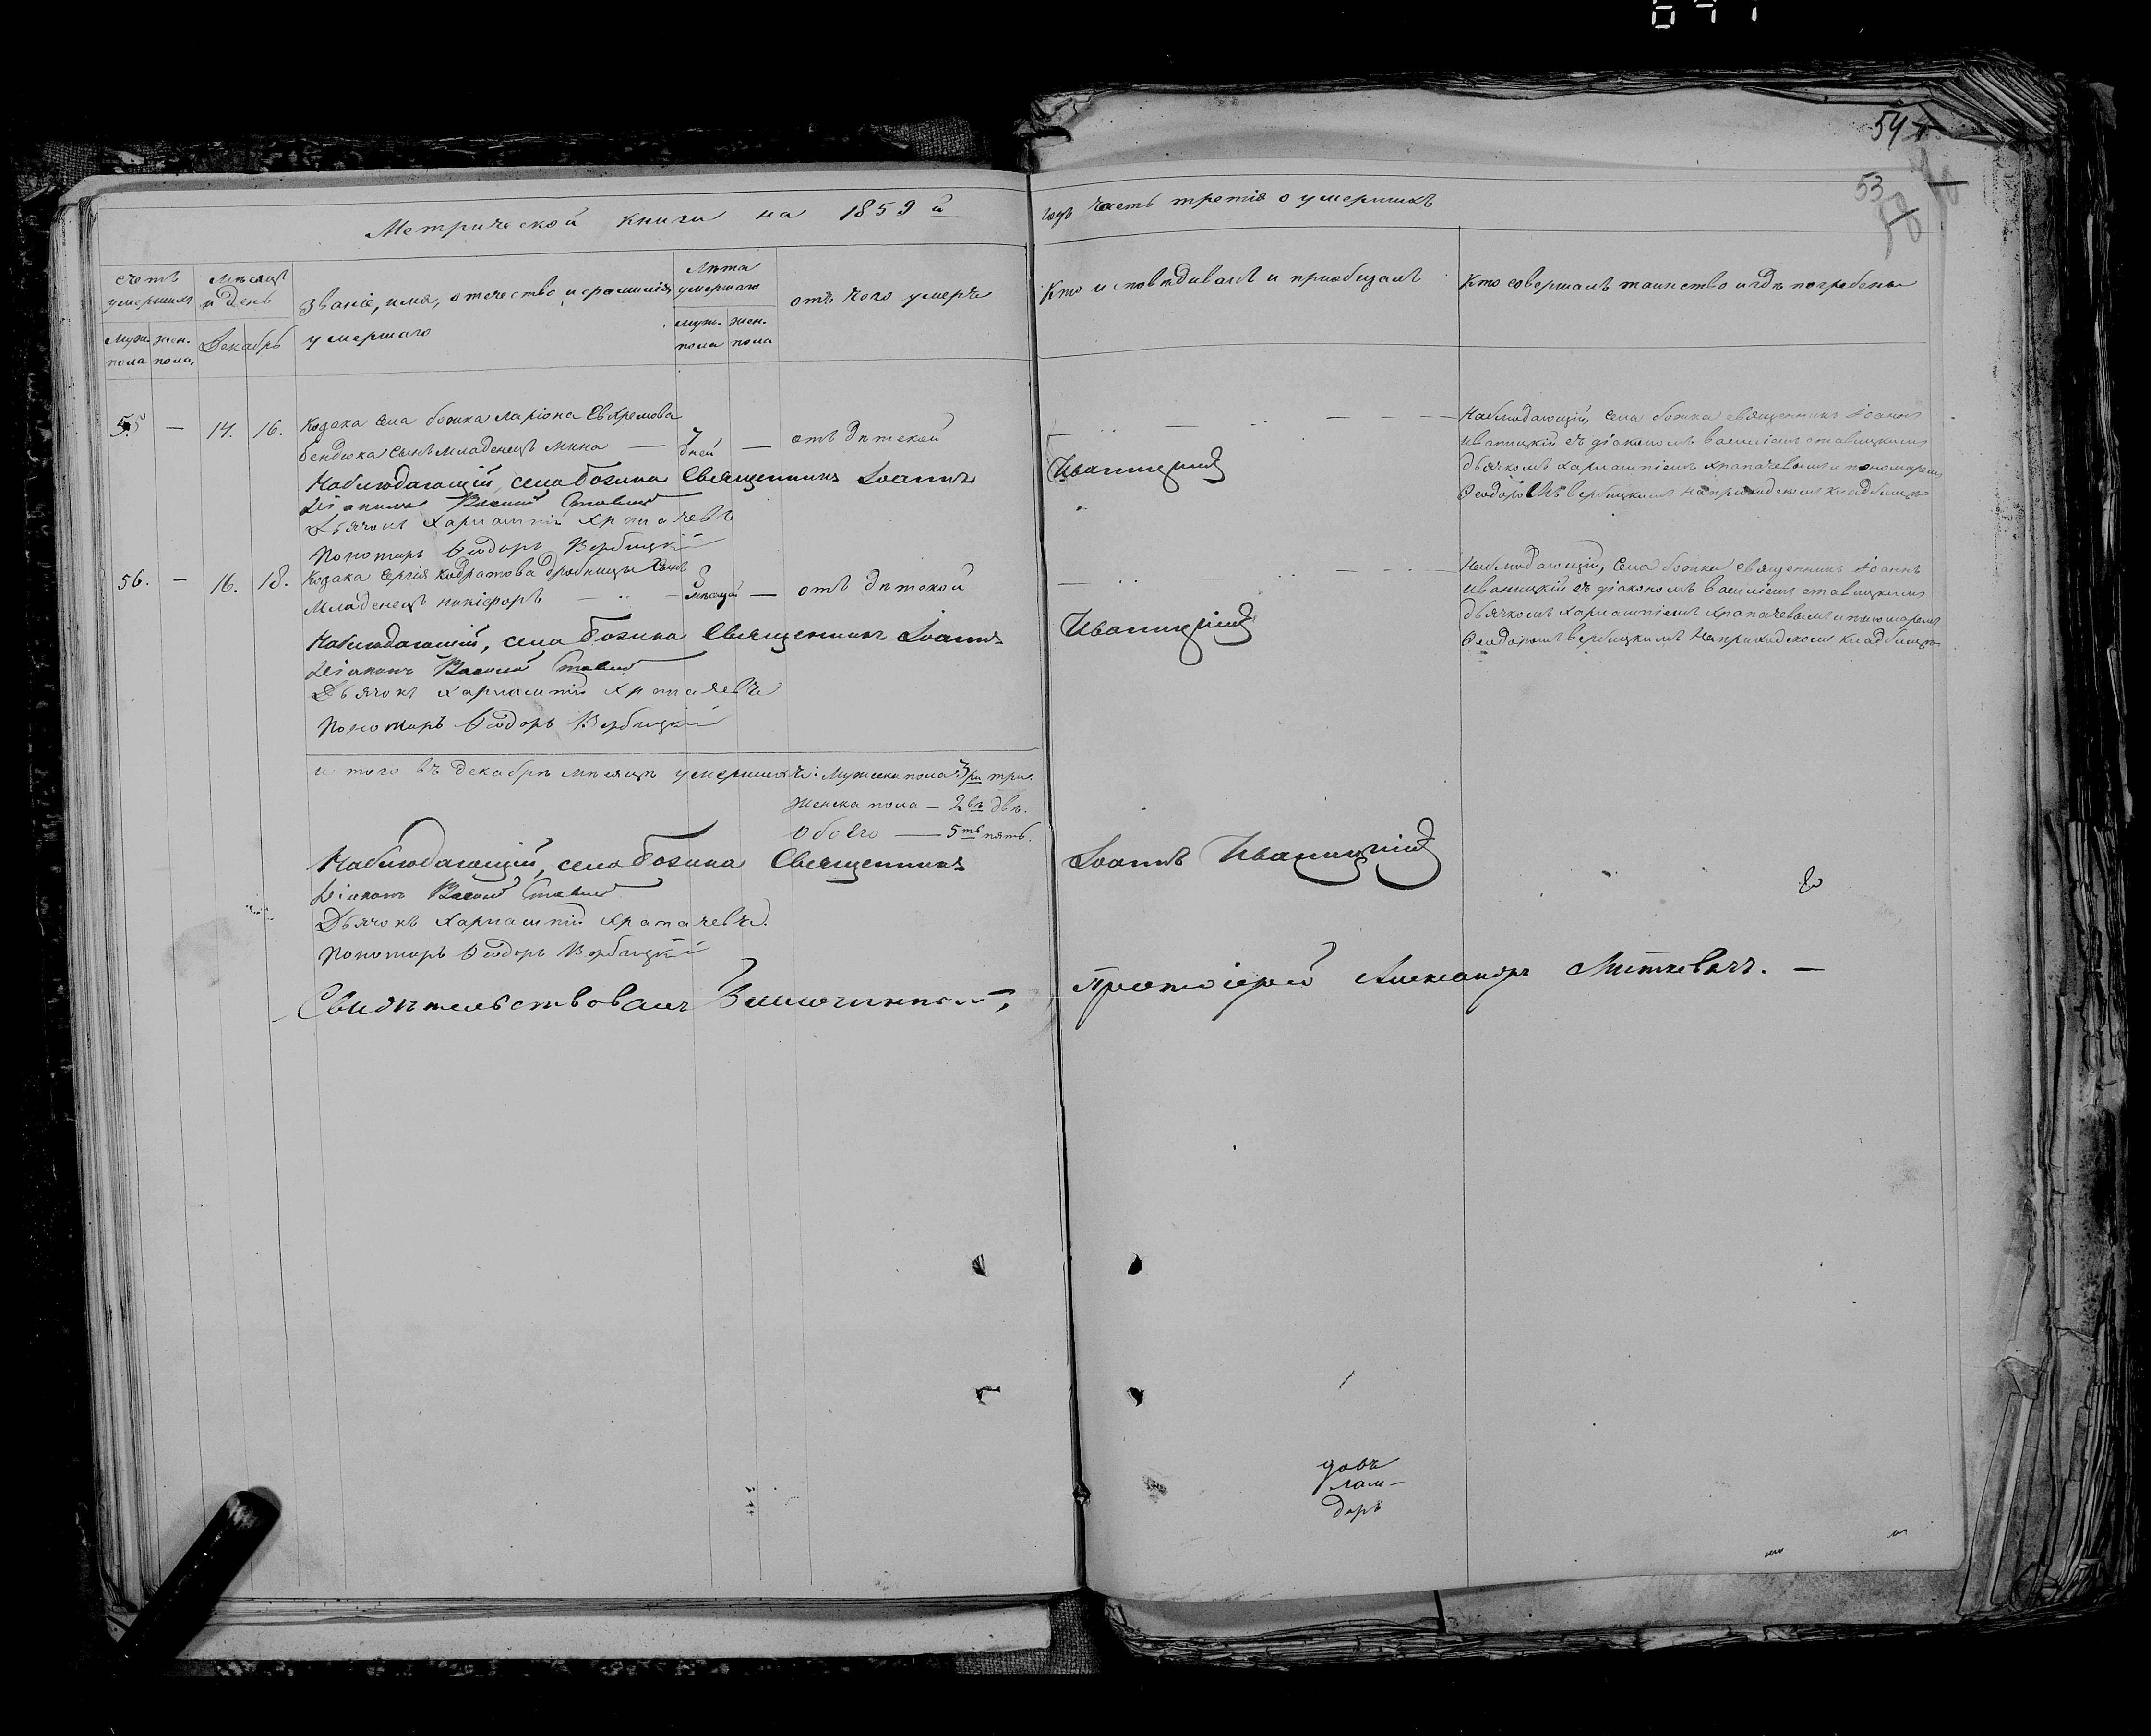 54
53
Метрической книги на 1859 й
годъ часть третія о умершихъ
счетъ умершихъ
Мѣсяцъ и день
Званіе, имя, отечество, и фамилія умершаго
Лѣта умершаго
отъ чего умеръ
Кто исповѣдывалъ и приобщалъ
Кто совершалъ таинство и гдѣ погребены
Муж. пола
жен. пола
Декабрь
муж. пола
жен. пола
55 — 14. 16. Козака села божка Ларіона Евхремова
бендюка сынъ младенецъ Мина — 7 дней — отъ дѣтской
Наблюдающій, села божка священникъ Іоаннъ
Иваницкій съ діакономъ Василіемъ Ставицкимъ
дьячкомъ Харлампіемъ Храпачевымъ и пономаремъ
Феодоромъ Вербицкимъ на приходскомъ кладбищѣ
Наблюдающій, села Божка Священникъ Іоаннъ Иваницкій
Діаконъ Василій
Дьячокъ Харлампій Храпачевъ
Пономарь Феодоръ Вербицкій
56. — 16. 18. Козака Сергія Кодратова дробницы сынъ
Младенецъ никифоръ — 8 мѣсяцей — отъ дѣтской
Наблюдающій, села божка священникъ Іоаннъ
Иваницкій съ діакономъ Василіемъ Ставицкимъ
дьячкомъ Харлампіемъ Храпачевымъ и пономаремъ
Феодоромъ Вербицкимъ на приходскомъ кладбищѣ
Наблюдающій, села Божка Священникъ Іоаннъ Иваницкій
Діаконъ Василій
Дьячокъ Харлампій Храпачевъ
Пономарь Феодоръ Вербицкій
и того въ декабрѣ мѣсяцѣ умершихъ: Мужеска пола 3 ри три.
Женска пола — 2 вѣ двѣ.
Обоего — 5 ть пять.
Наблюдающій, села Божка Священникъ Іоаннъ Иваницкій
Діаконъ Василій
Дьячокъ Харлампій Храпачевъ
Пономарь Феодоръ Вербицкій
Свидѣтельствовалъ Благочинный, Протоіерей Александръ Миткевичъ. —